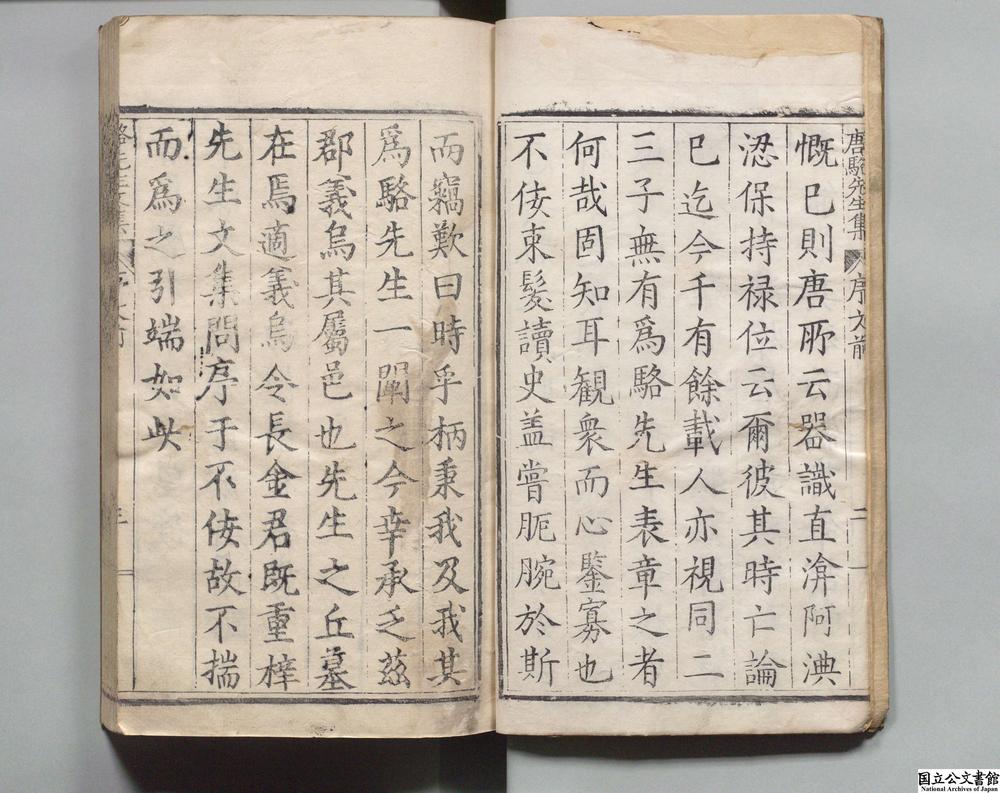 唐駱先生集 序文前 二
慨巳則唐所云器識直渰阿淟
涊保持禄位云爾彼其時亡論
巳迄今千有餘載人亦視同二
三子無有爲駱先生表章之者
何哉固知耳観衆而心鑒寡也
不佞束髮讀史盖嘗腕於斯
而竊歎曰時乎柄秉我及我其
爲駱先生一闡之今幸承乏茲
郡義烏其屬邑也先生之丘墓
在焉適義烏令長金君既重梓
先生文集問序于不佞故不揣
而爲之引端如此
国立公文書館
National Archives of Japan